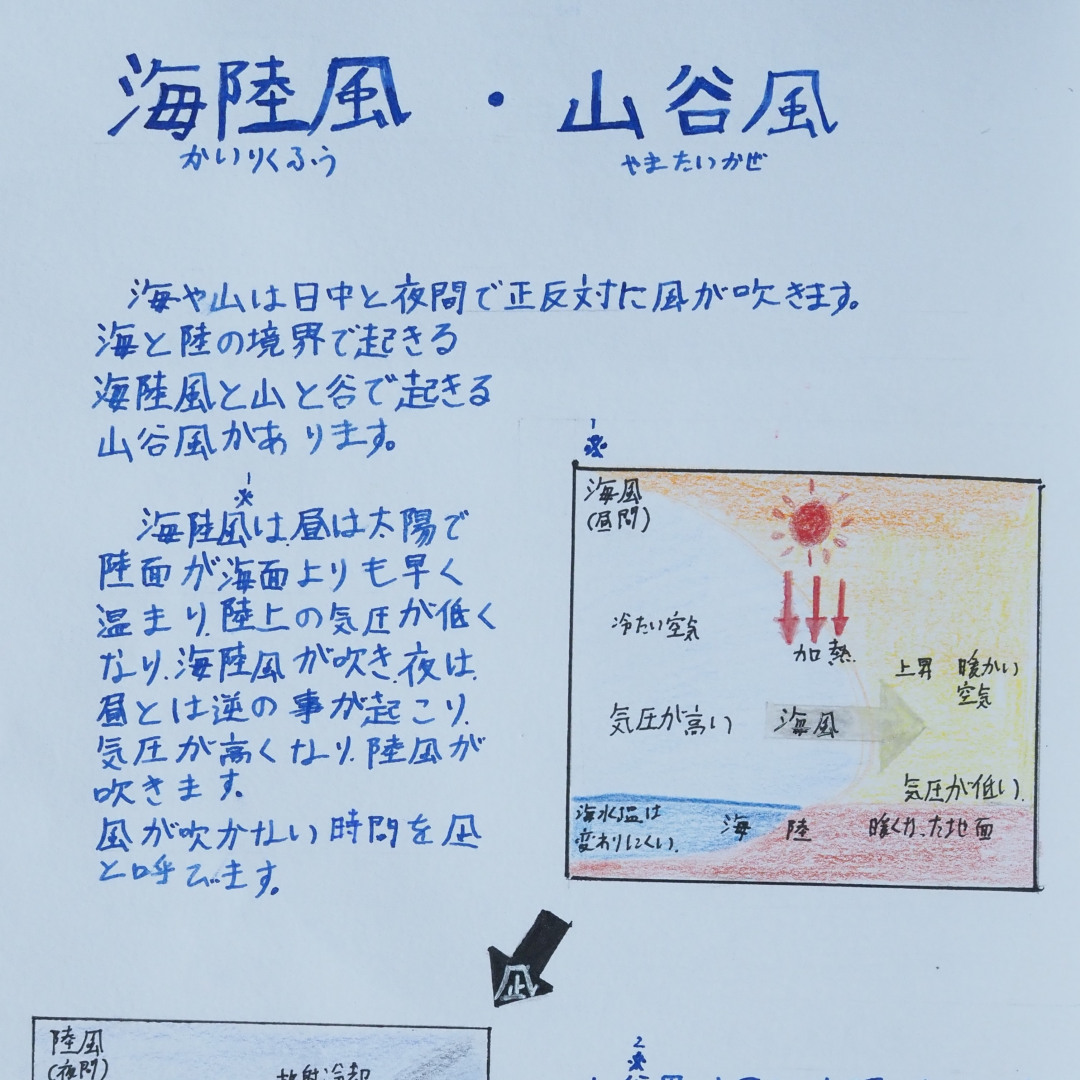 海陸風 ・ 山谷風
かいりくふう やまたいかぜ
海や山は日中と夜間で正反対に風が吹きます。
海と陸の境界で起きる
海陸風と山と谷で起きる
山谷風があります。
※1
海陸風は、昼は太陽で
陸面が海面よりも早く
温まり、陸上の気圧が低く
なり、海陸風が吹き、夜は、
昼とは逆の事が起こり、
気圧が高くなり、陸風が
吹きます。
風が吹かない時間を凪
と呼びます。
※1
海風
(昼間)
冷たい空気
加熱
上昇 暖かい
空気
気圧が高い
海風
気圧が低い
海水温は
変わりにくい。
海 陸
暖くなった地面
凪
陸風
(夜間)
放射冷却
※2